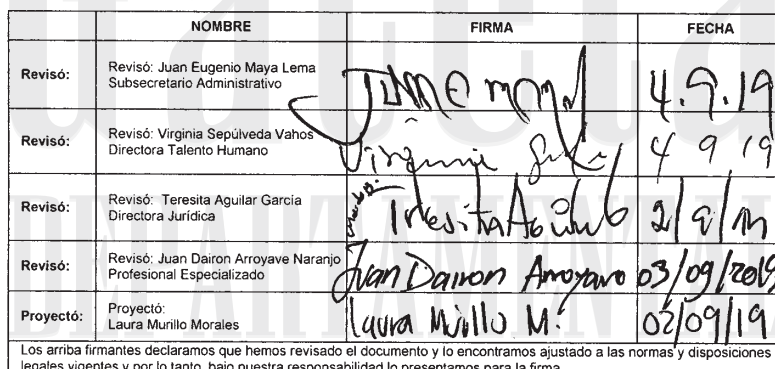 NOMBRE FIRMA FECHA
Revisó: Revisó: Juan Eugenio Maya Lema
Subsecretario Administrativo
4.9.19
Revisó: Revisó: Virginia Sepúlveda Vahos
Directora Talento Humano
Virginia
4 9 19
Revisó: Revisó: Teresita Aguilar García
Directora Jurídica
Teresita Aguilar
2/9/19
Revisó: Revisó: Juan Dairon Arroyave Naranjo
Profesional Especializado
Juan Dairon Arroyave 03/09/2019
Proyectó: Proyectó:
Laura Murillo Morales
Laura Murillo M. 02/09/19
Los arriba firmantes declaramos que hemos revisado el documento y lo encontramos ajustado a las normas y disposiciones
legales vigentes y por lo tanto, bajo nuestra responsabilidad lo presentamos para la firma